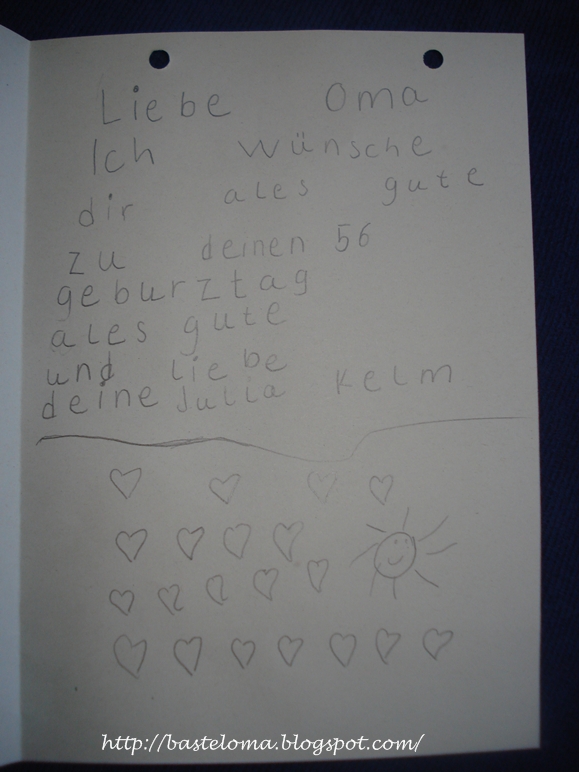 Liebe Oma
Ich wünsche
dir ales gute
zu deinen 56
geburztag
ales gute
und liebe
deine Julia Kelm
http://basteloma.blogspot.com/